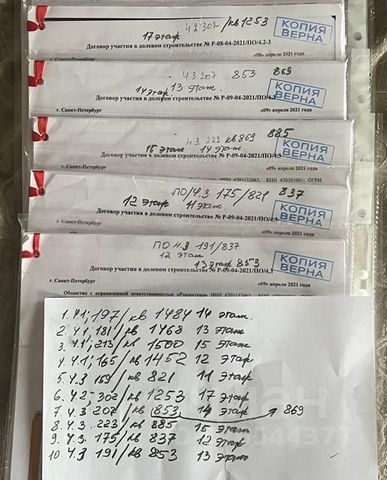 42 302 / кв 1253
17 этаж
КОПИЯ ВЕРНА
Договор участия в долевом строительстве № Р-08-04-2021/ПО/4.2-3
г. Санкт-Петербург «08» апреля 2021 года
43 207 853 869
13 этаж
14 этаж
КОПИЯ ВЕРНА
Договор участия в долевом строительстве № Р-09-04-2021/ПО/4.
г. Санкт-Петербург «09» апреля 2021 года
43 223 кв 869 885
15 этаж 14 этаж
КОПИЯ ВЕРНА
Договор участия в долевом строительстве № Р-09-04-2021/ПО/4.3
г. Санкт-Петербург
ПО/4.3 175/821 837
12 этаж 11 этаж
КОПИЯ ВЕРНА
Договор участия в долевом строительстве № Р-09-04-2021/ПО/4.
г. Санкт-Петербург «09» апреля 2021 года
ПО 4.3 191/837
12 этаж
13 этаж 853
КОПИЯ ВЕРНА
Договор участия в долевом строительстве № Р-09-04-2021/ПО/4.3
г. Санкт-Петербург «09» апреля 2021 года
Общество с ограниченной ответственностью
1. 4.1; 197/кв 1484 14 этаж.
2. 4.1; 181/кв 1468 13 этаж
3. 4.1; 213/кв 1500 15 этаж
4. 4.1; 165/кв 1452 12 этаж
5. 4.3 159/кв 821 11 этаж
6. 4.2; 302/кв 1253 17 этаж
7. 4.3 207/кв 853 14 этаж 869
8. 4.3. 223/кв 885 15 этаж
9. 4.3. 175/кв 837 12 этаж
10 4.3 191/кв 853 13 этаж